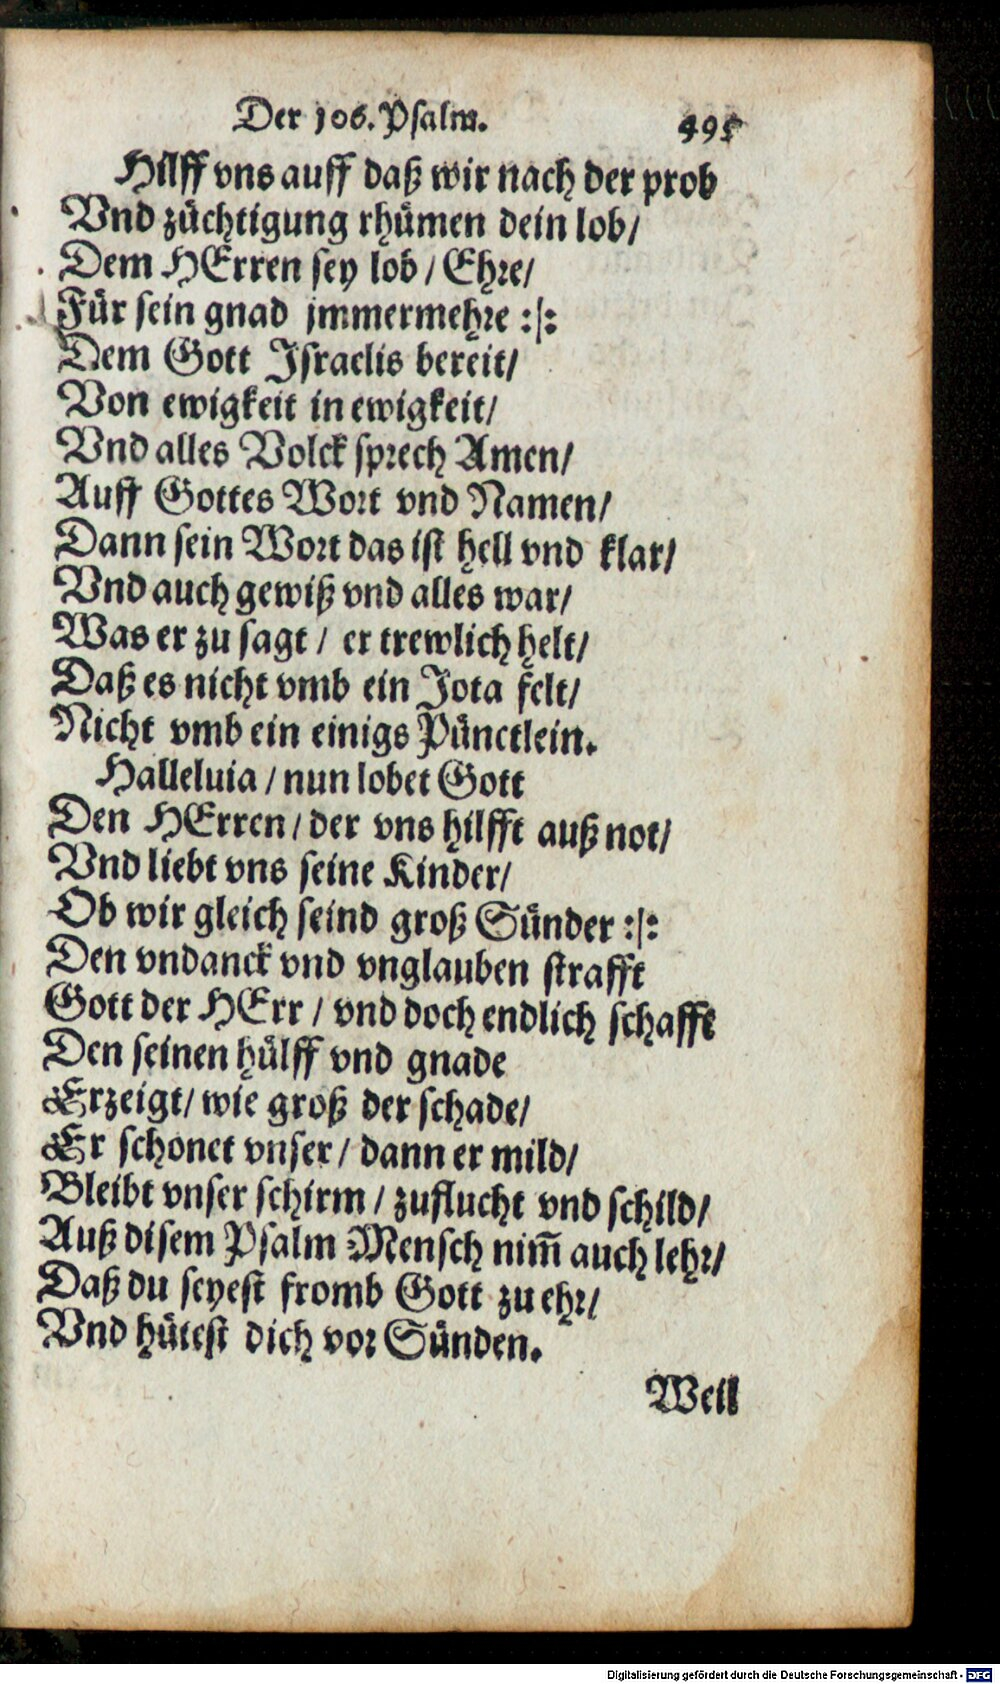 Der 106. Psalm. 495
Hilff vns auff daß wir nach der prob
Vnd züchtigung rhümen dein lob/
Dem HErren sey lob / Ehre/
Für sein gnad jmmermehre :|:
Dem Gott Israelis bereit/
Von ewigkeit in ewigkeit/
Vnd alles Volck sprech Amen/
Auff Gottes Wort vnd Namen/
Dann sein Wort das ist hell vnd klar/
Vnd auch gewiß vnd alles war/
Was er zu sagt / er trewlich helt/
Daß es nicht vmb ein Jota felt/
Nicht vmb ein einigs Pünctlein.
Halleluia / nun lobet Gott
Den HErren / der vns hilfft auß not/
Vnd liebt vns seine Kinder/
Ob wir gleich seind groß Sünder :|:
Den vndanck vnd vnglauben strafft
Gott der HErr / vnd doch endlich schafft
Den seinen hülff vnd gnade
Erzeigt/ wie groß der schade/
Er schonet vnser / dann er mild/
Bleibt vnser schirm / zuflucht vnd schild/
Auß disem Psalm Mensch nim̅ auch lehr/
Daß du seyest fromb Gott zu ehr/
Vnd hütest dich vor Sünden.
Weil
Digitalisierung gefördert durch die Deutsche Forschungsgemeinschaft - DFG